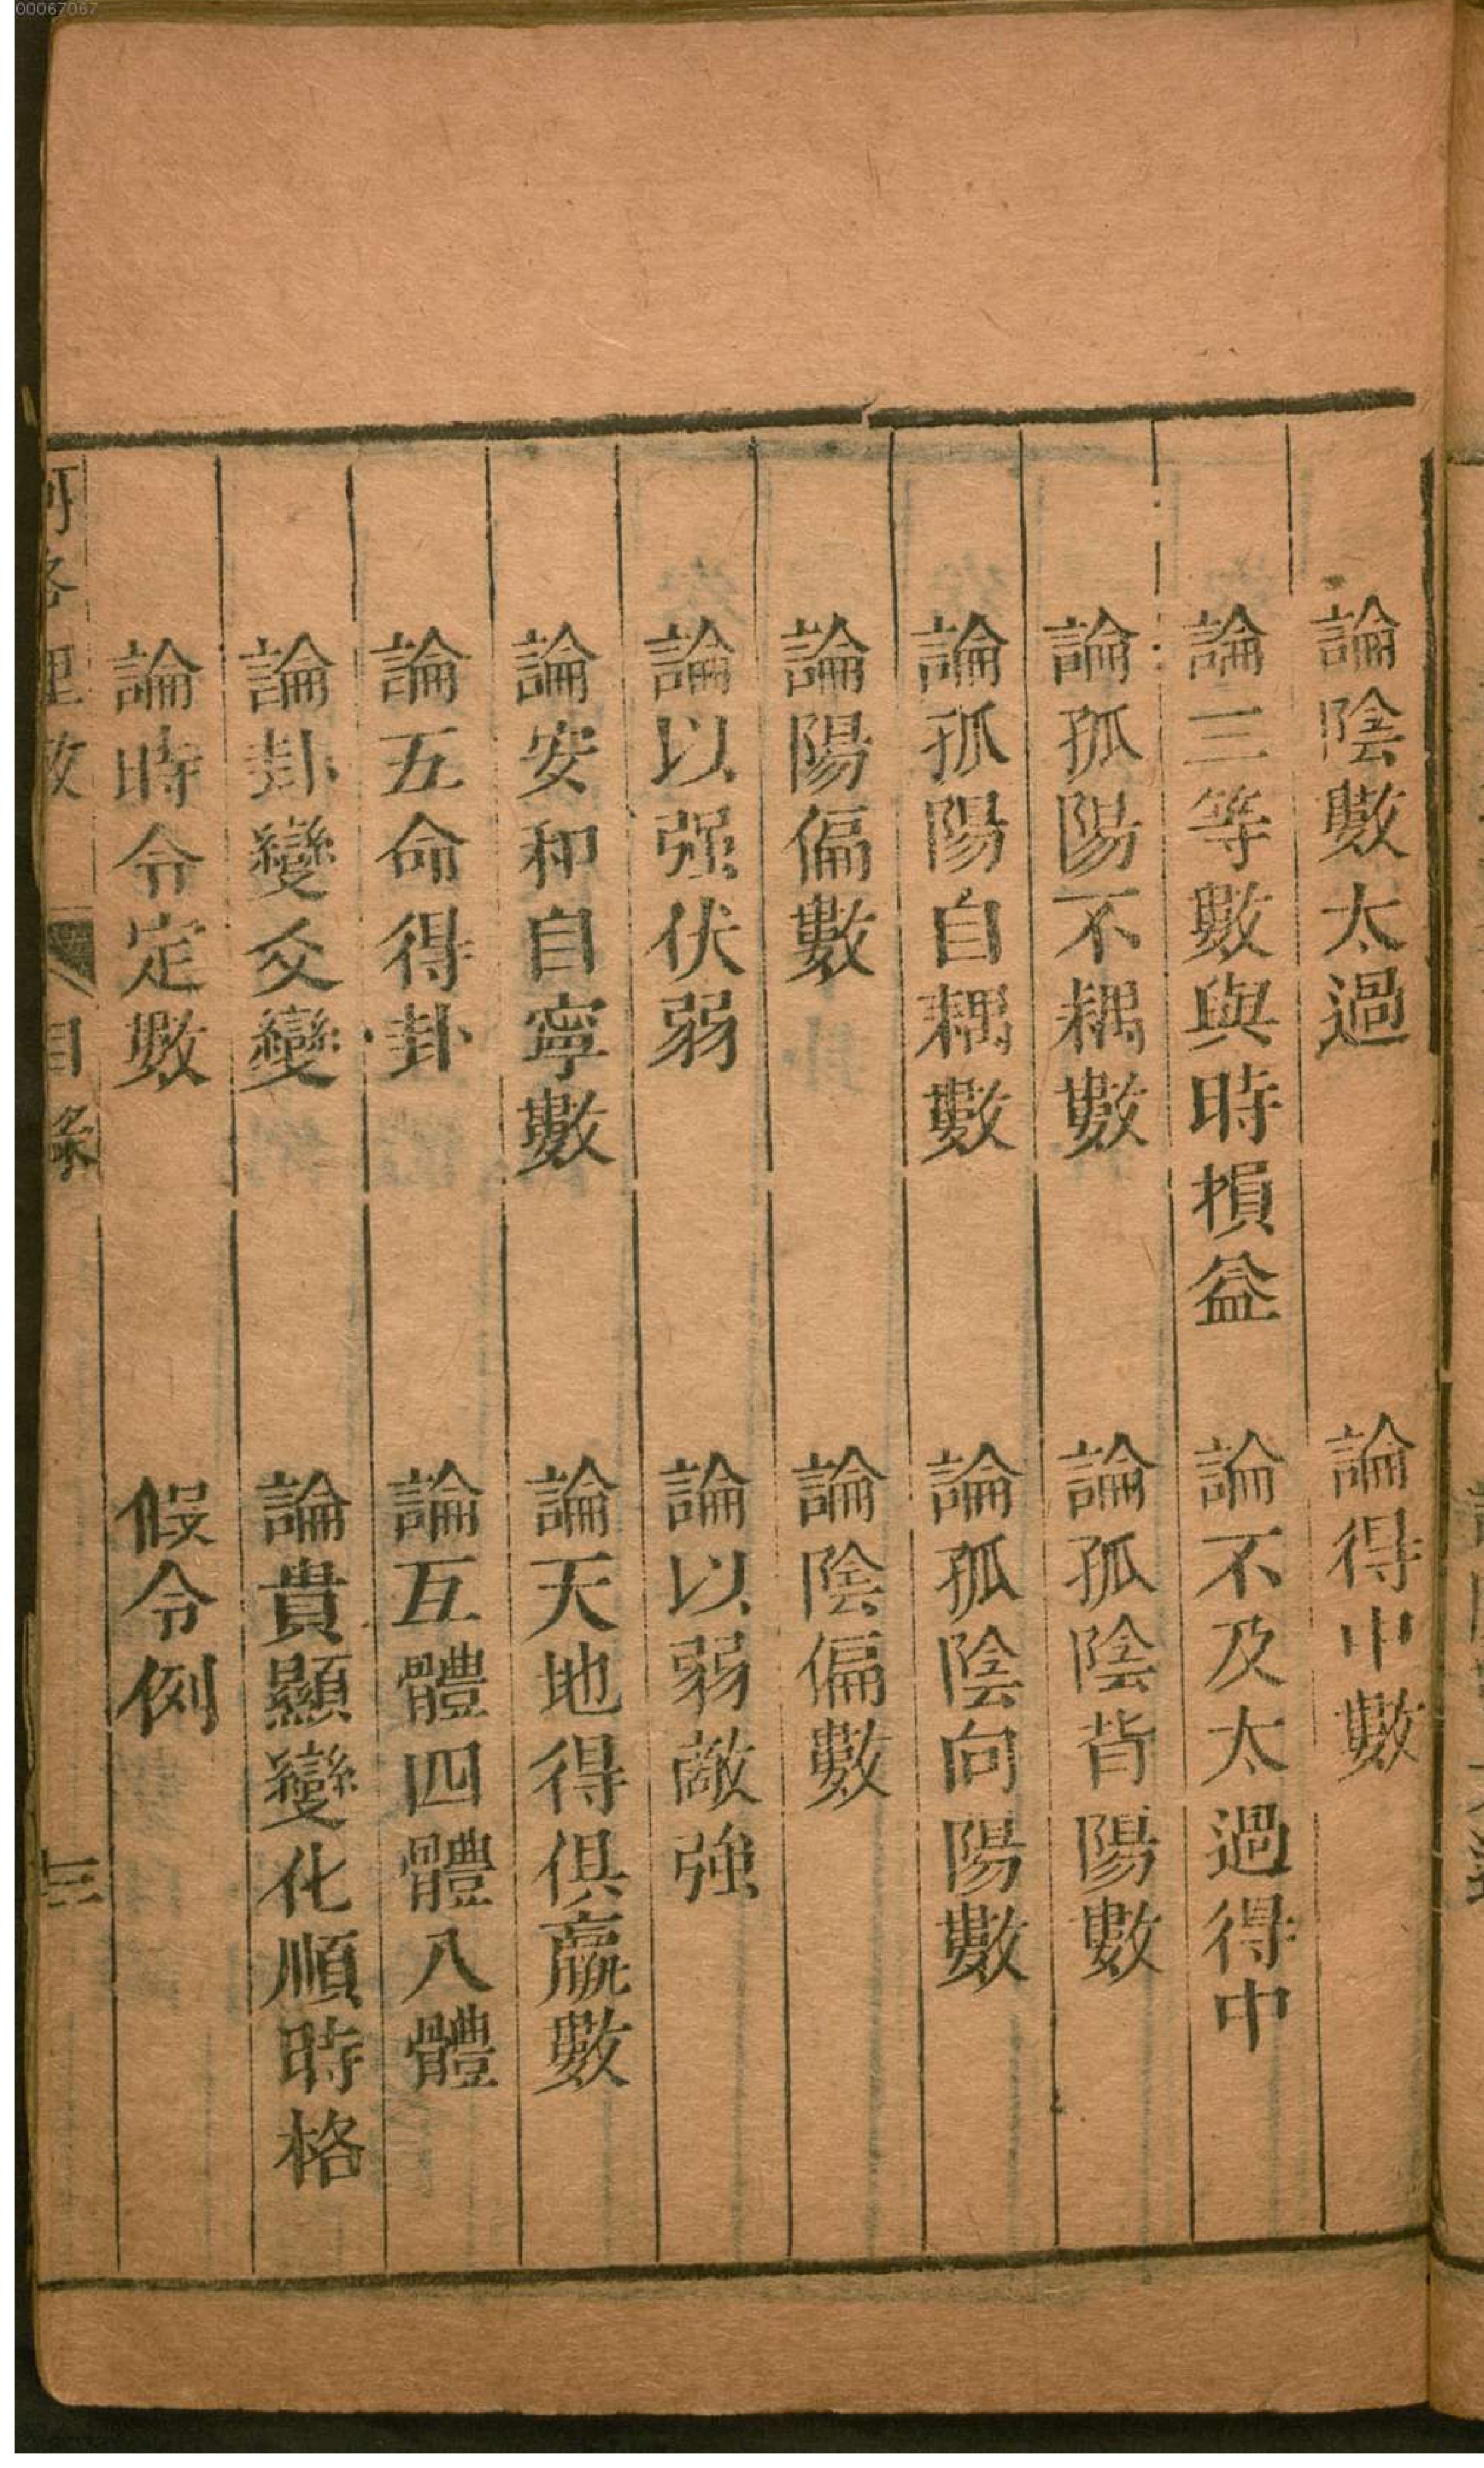 00067067
論陰數太過　論得中數
論三等數與時損益　論不及太過得中
論孤陽不耦數　論孤陰背陽數
論孤陽自耦數　論孤陰向陽數
論陽偏數　論陰偏數
論以强伏弱　論以弱敵強
論安和自寧數　論天地得俱贏數
論五命得卦　論互體四體八體
論卦變爻變　論貴顯變化順時格
論時令定數　假令例
目錄 三